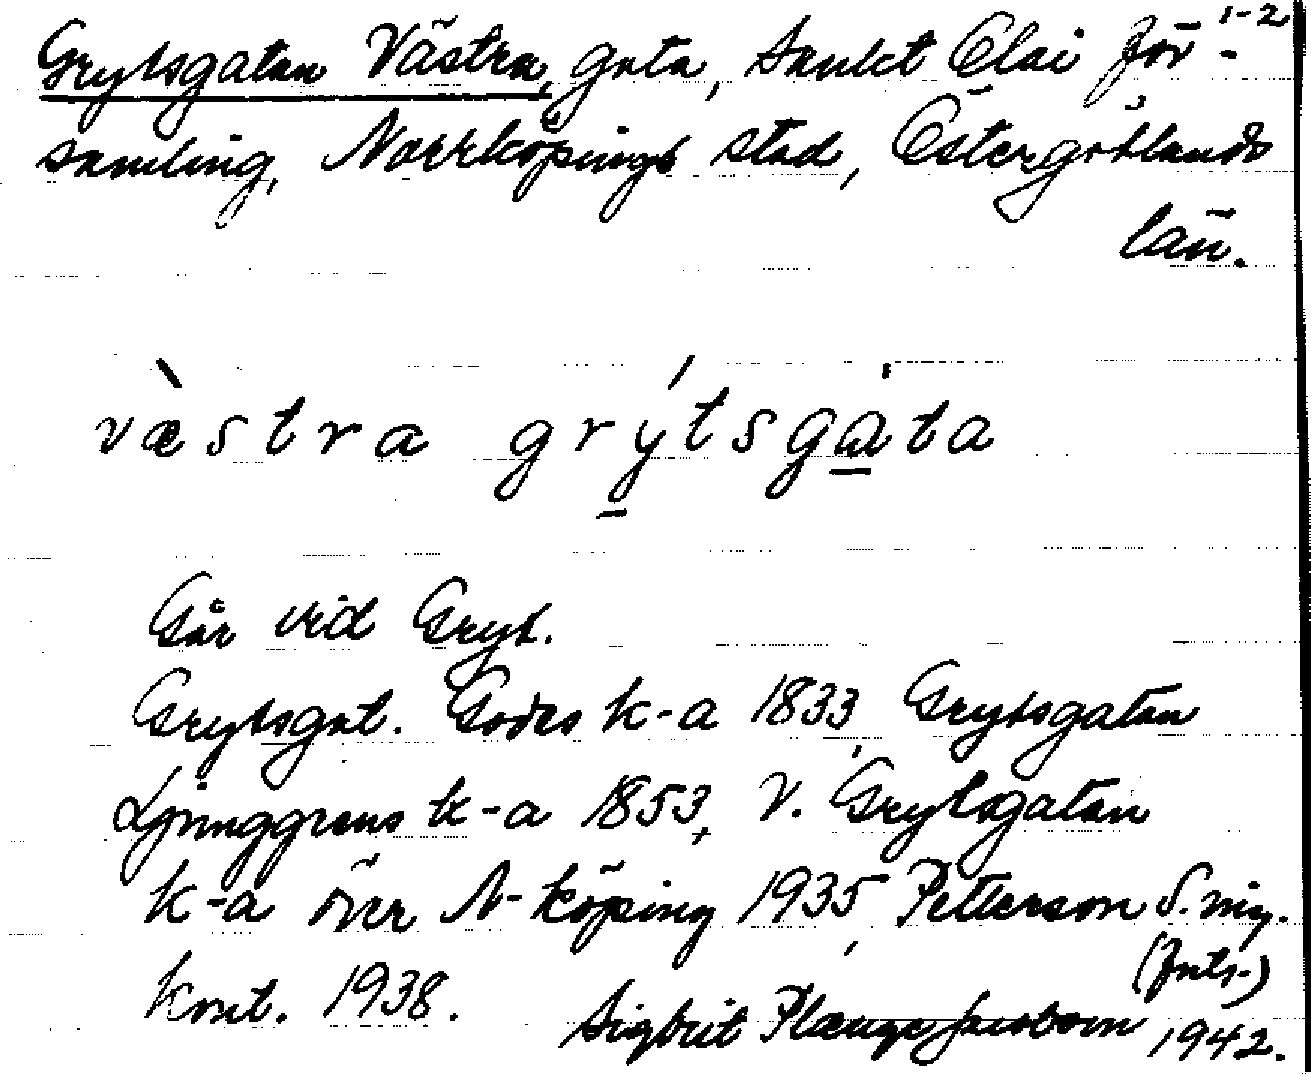 1-2
Grytsgatan Västra, gata, Sankt Olai för-
samling, Norrköpings stad, Östergötlands
län.
væ̀stra grýtsgàta
Går vid Gryt.
Grytsgat. Godes k-a 1833, Grytsgatan
Ljunggrens k-a 1853, V. Grytsgatan
k-a över N-köping 1935, Petterson S. ing.
kont. 1938.
Sigbrit Plænge Jacobson 1942.